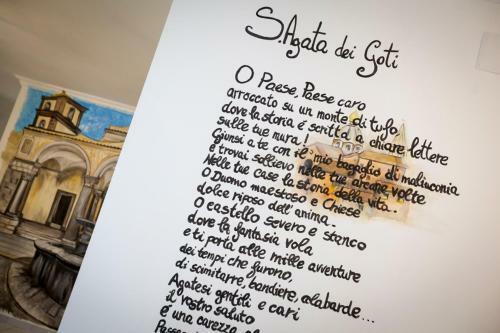 S. Agata dei Goti
O Paese, Paese caro
arroccato su un monte di tufo,
dove la storia è scritta a chiare lettere
sulle tue mura!
Giunsi a te con il mio bagaglio di malinconia
e trovai sollievo nelle tue arcane volte
Nelle tue case la storia della vita..
O Duomo maestoso e Chiese
dolce riposo dell'anima..
O castello severo e stanco
dove la fantasia vola
e ti porta alle mille avventure
dei tempi che furono,
di scimitarre, bandiere, alabarde...
Agatesi gentili e cari
il vostro saluto
è una carezza